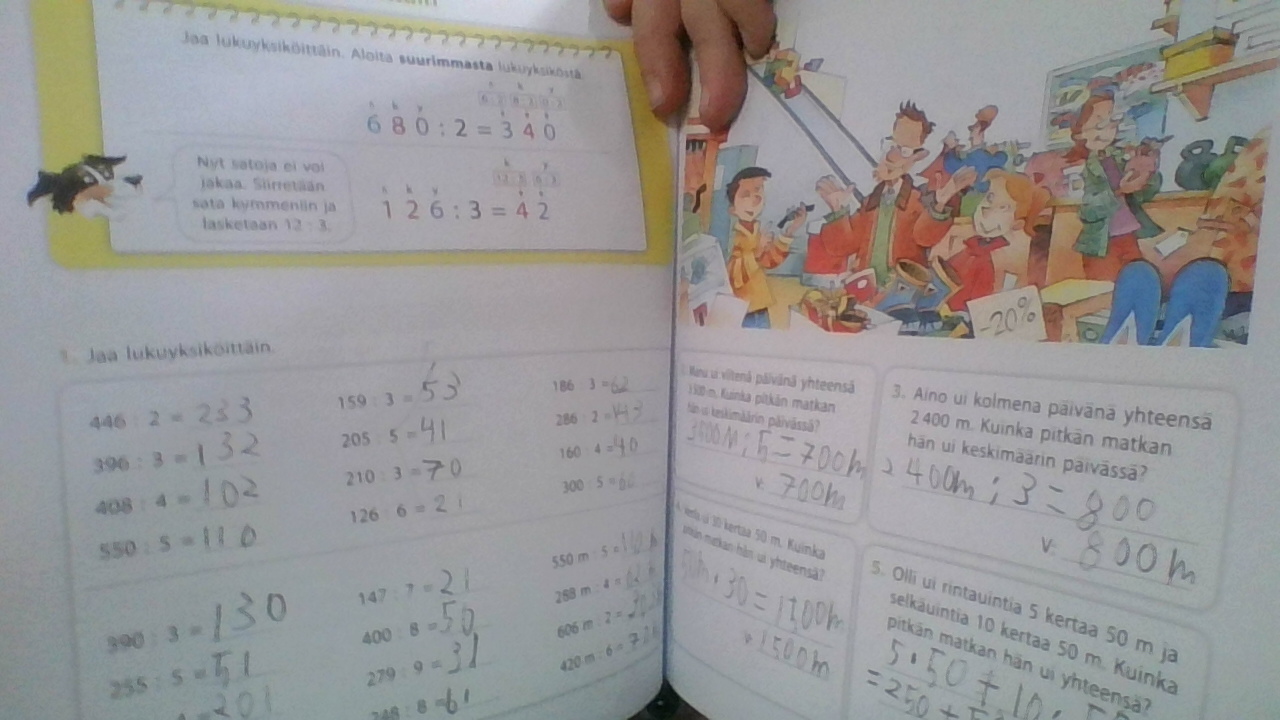 Jaa lukuyksiköittäin. Aloita suurimmasta lukuyksiköstä.
s k y
680 : 2 = 340
Nyt satoja ei voi
jakaa. Siirretään
sata kymmeniin ja
lasketaan 12 : 3.
s k y
126 : 3 = 42
-20%
1. Jaa lukuyksiköittäin.
446 : 2 = 233
396 : 3 = 132
408 : 4 = 102
550 : 5 = 110
159 : 3 = 53
205 : 5 = 41
210 : 3 = 70
126 : 6 = 21
186 : 3 = 62
286 : 2 = 143
160 : 4 = 40
300 : 5 = 60
390 : 3 = 130
255 : 5 = 51
= 201
147 : 7 = 21
400 : 8 = 50
279 : 9 = 31
248 : 8 = 61
550 m : 5 =
288 m : 4 =
606 m : 2 =
420 m : 6 =
ui viitenä päivänä yhteensä
Kuinka pitkän matkan
hän ui keskimäärin päivässä?
: 5 = 700m
v: 700m
3. Aino ui kolmena päivänä yhteensä
2 400 m. Kuinka pitkän matkan
hän ui keskimäärin päivässä?
2400m : 3 = 800
V: 800m
ui 30 kertaa 50 m. Kuinka
pitkän matkan hän ui yhteensä?
· 30 = 1500m
v 1500m
5. Olli ui rintauintia 5 kertaa 50 m ja
selkäuintia 10 kertaa 50 m. Kuinka
pitkän matkan hän ui yhteensä?
5·50 + 10·
= 250 +